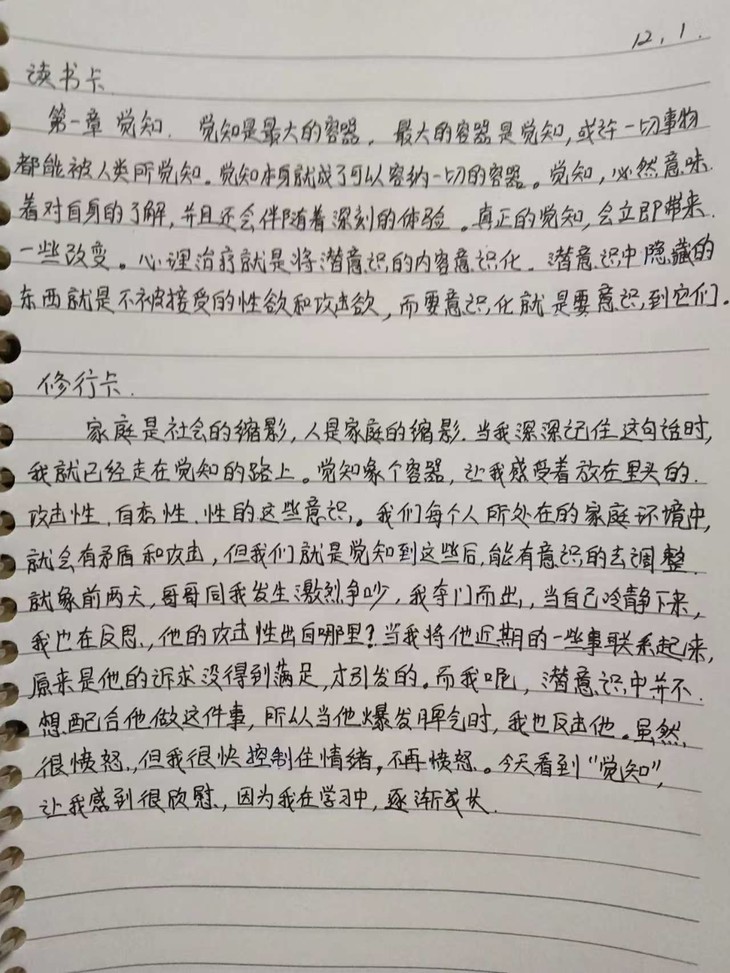 12,1.
读书卡
第一章 觉知. 觉知是最大的容器。最大的容器是觉知,或许一切事物
都能被人类所觉知。觉知本身就成了可以容纳一切的容器。觉知,必然意味
着对自身的了解,并且还会伴随着深刻的体验。真正的觉知,会立即带来
一些改变。心理治疗就是将潜意识的内容意识化。潜意识中隐藏的
东西就是不被接受的性欲和攻击欲,而要意识化就是要意识到它们。
修行卡.
家庭是社会的缩影,人是家庭的缩影.当我深深记住这句话时,
我就已经走在觉知的路上。觉知象个容器,让我感受着放在里头的.
攻击性.自恋性.性的这些意识。我们每个人所处在的家庭环境中,
就会有矛盾和攻击,但我们就是觉知到这些后,能有意识的去调整.
就象前两天,哥哥同我发生激烈争吵,我夺门而出,当自己冷静下来,
我也在反思,他的攻击性出自哪里?当我将他近期的一些事联系起来,
原来是他的诉求没得到满足,才引发的。而我呢,潜意识中并不.
想配合他做这件事,所以当他爆发脾气时,我也反击他。虽然
很愤怒,但我很快控制住情绪,不再愤怒。今天看到“觉知”,
让我感到很欣慰,因为我在学习中,逐渐成长.